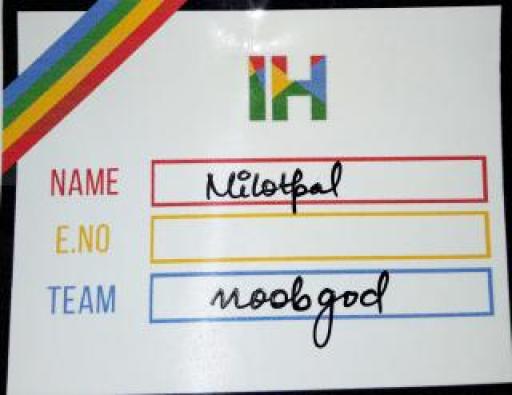 IH
NAME Nilotpal
E.NO
TEAM noobgod